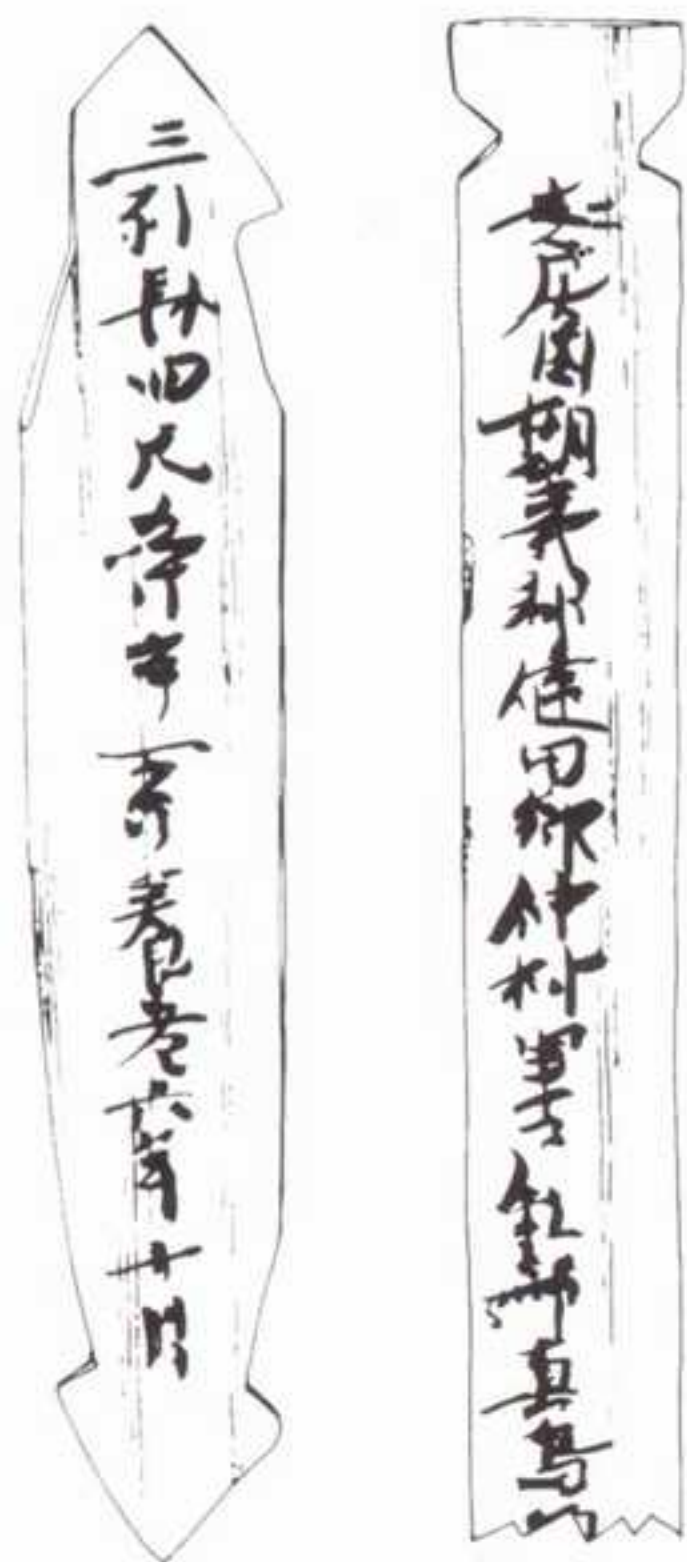 安房国朝夷郡健田郷仲村里戸私部真鳥
三列長四尺 一 養老六年十月